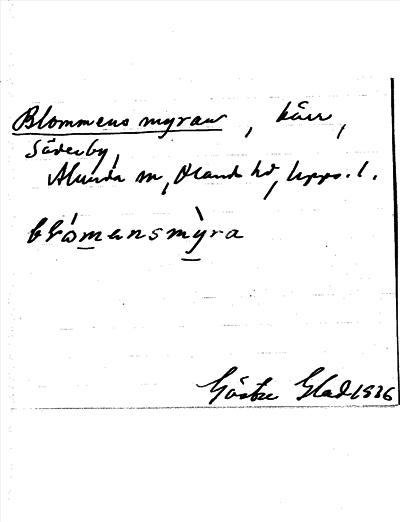 Blommens myran, kärr,
Söderby,
Alunda sn, Olands hd, Upps. l.
blómansmỳra
Gösta Glad 1936